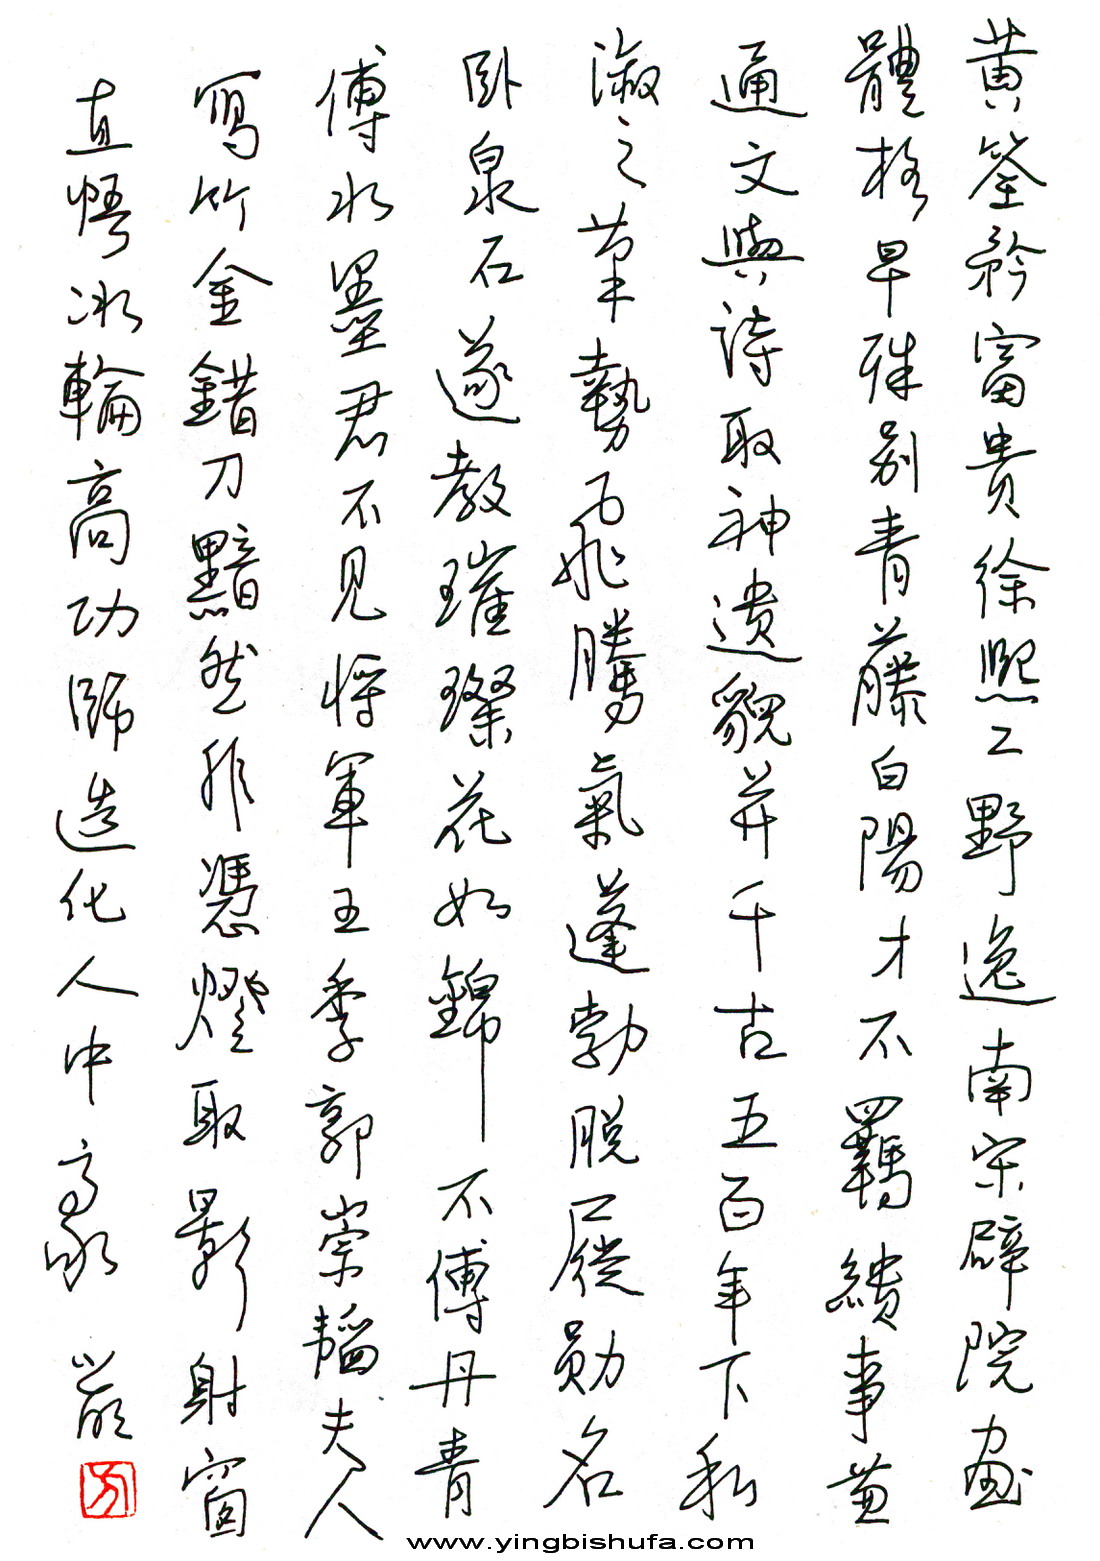 黄筌矜富貴徐熙工野逸南宋辟院画
體格早殊别青藤白陽才不羈繢事兼
通文與詩取神遺貌并千古五百年下私
淑之筆勢飛騰氣蓬勃脱屣勛名
卧泉石遂教璀璨花如錦不傅丹青
傅水墨君不見將軍王季郭崇韜夫人
寫竹金錯刀黯然非憑燈取影射窗
直悟冰輪高功歸造化人中豪
www.yingbishufa.com